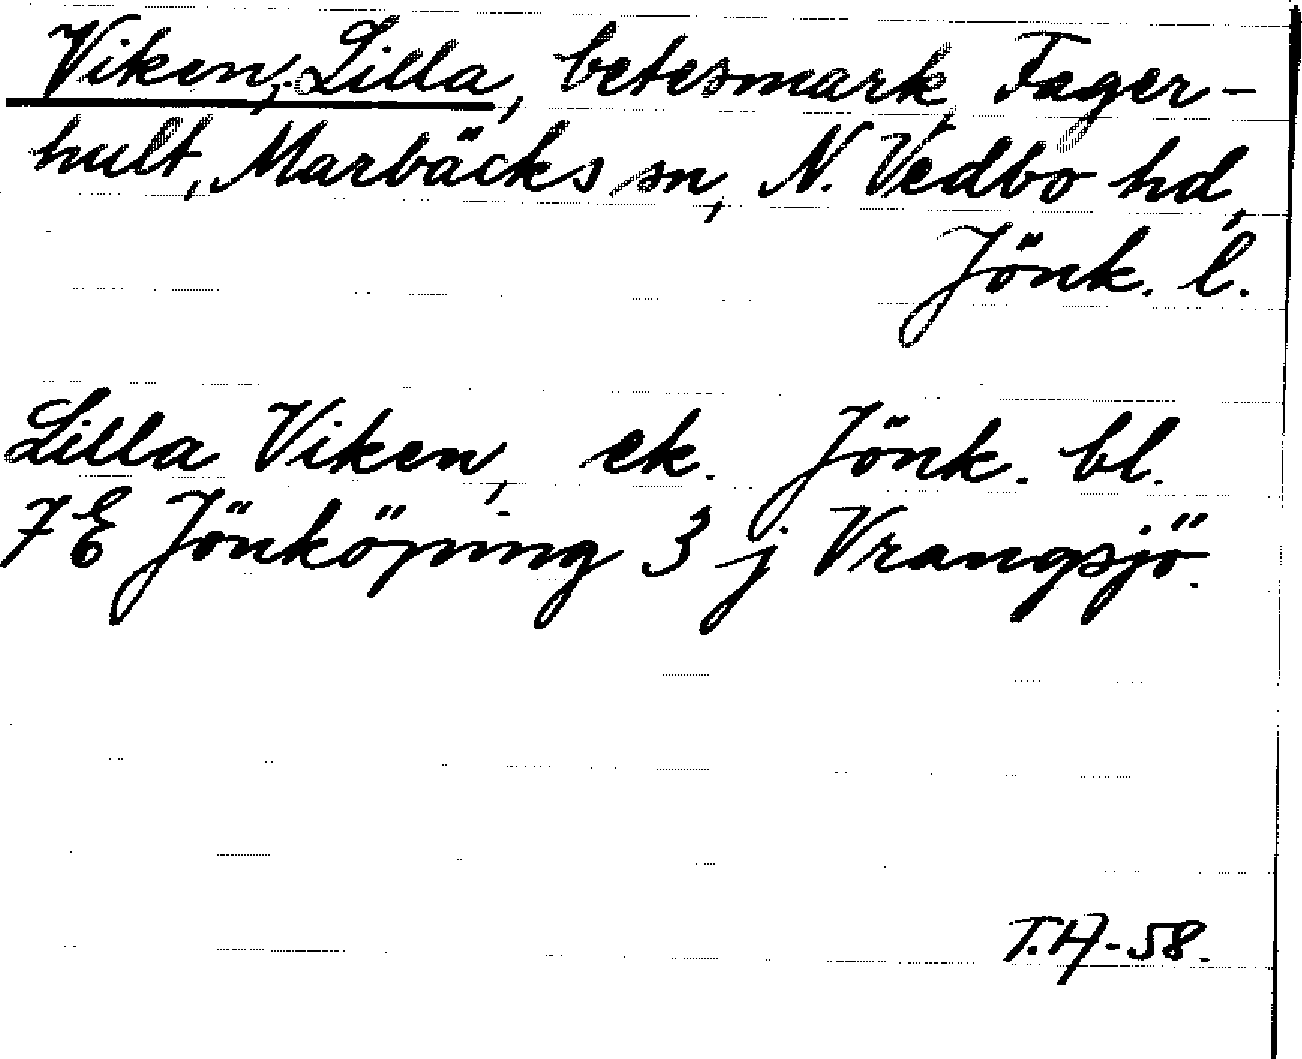 Viken, Lilla, betesmark, Fager-
hult, Marbäcks sn, N. Vedbo hd,
Jönk. l.
Lilla Viken, ek. Jönk. bl.
7E Jönköping 3 j Vrangsjö.
T.H-58.